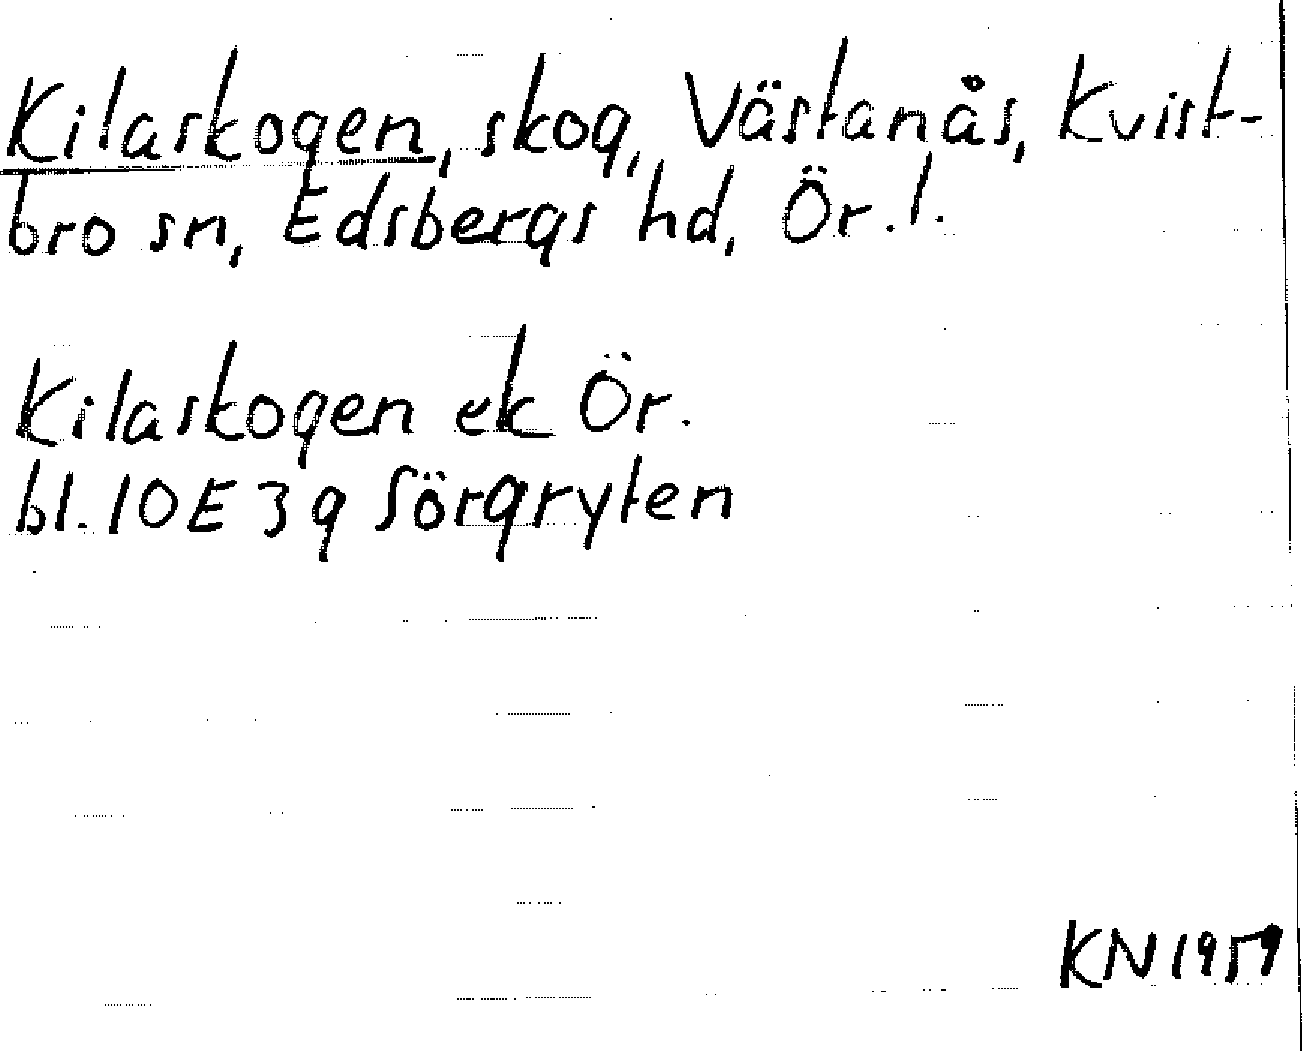 Kilaskogen, skog, Västanås, Kvist-
bro sn, Edsbergs hd, Ör. l.
Kilaskogen ek Ör.
bl. 10E 3g Sörgryten
KN 1959